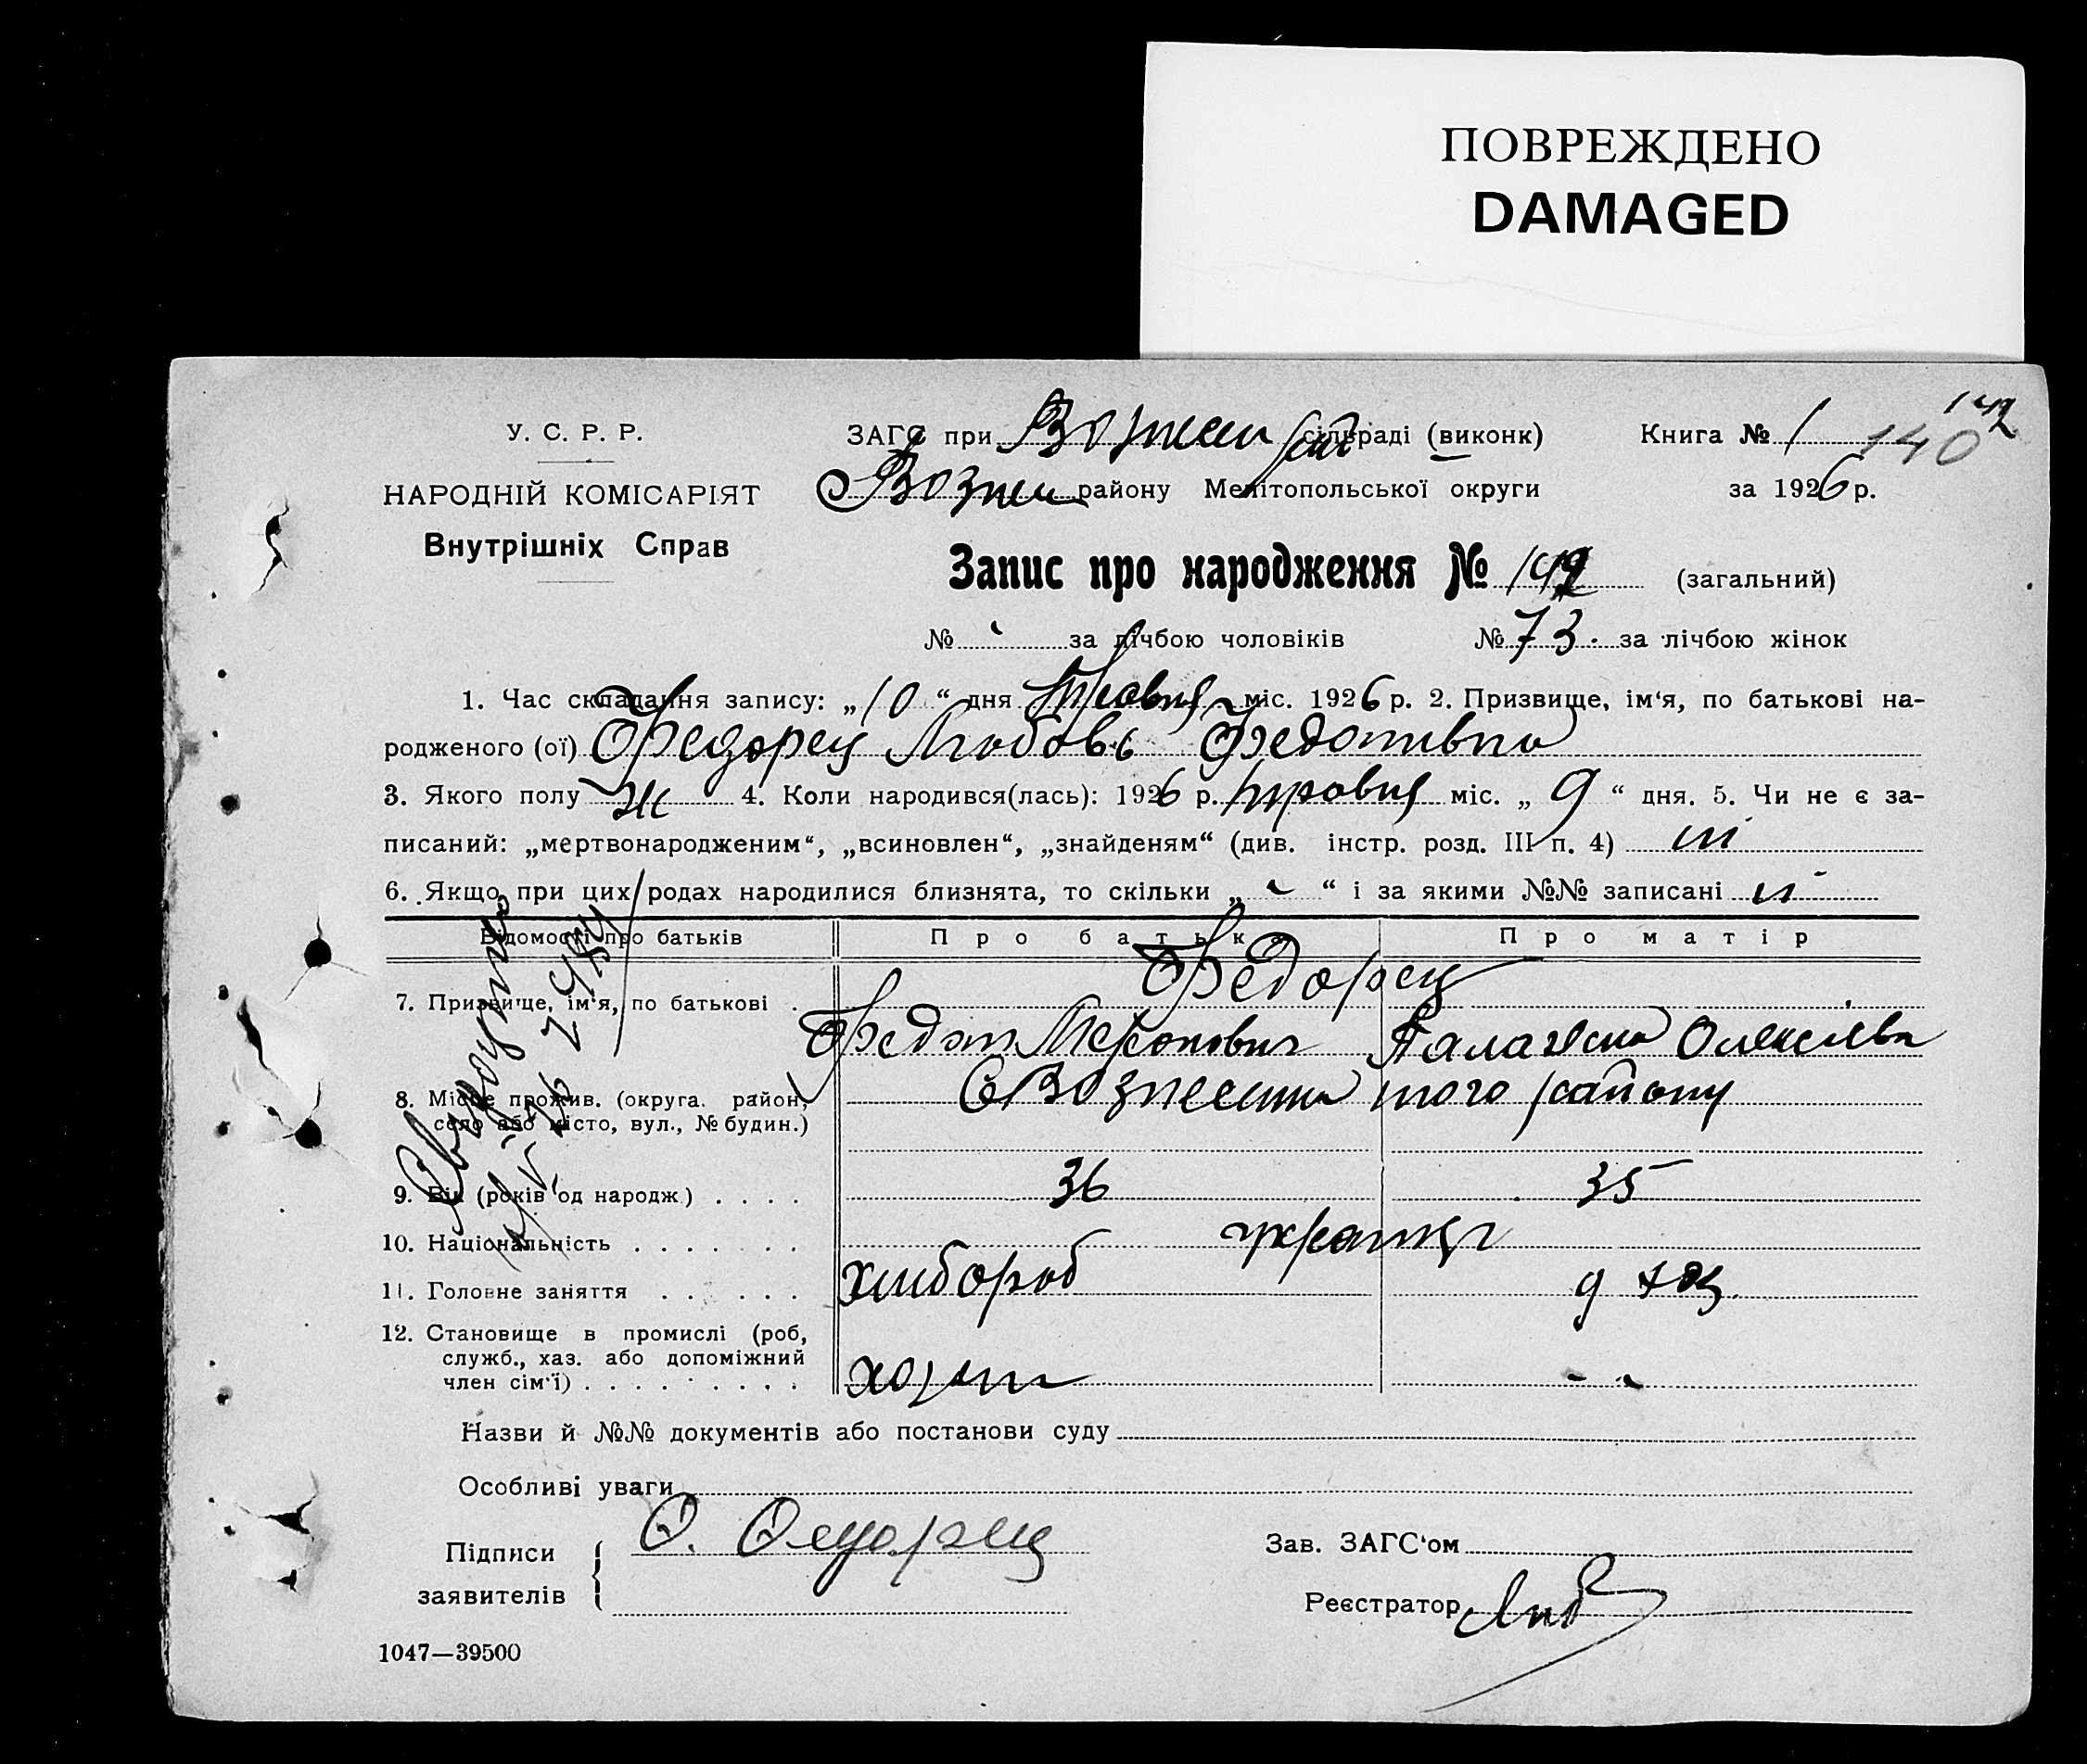 ПОВРЕЖДЕНО
DAMAGED
У. С. Р. Р.
НАРОДНІЙ КОМІСАРІЯТ
Внутрішніх Справ
ЗАГС при Вознесен рай сільраді (виконк)
Книга № 1
140
142
Вознес району Мелітопольської округи
за 1926 р.
Запис про народження № 142 (загальний)
№ за лічбою чоловіків № 73 за лічбою жінок
1. Час складання запису: „10“ дня травня міс. 1926 р. 2. Призвище, ім‘я, по батькові на-
родженого (ої) Федорец Любовь Федотивна
3. Якого полу ж 4. Коли народився(лась): 1926 р. травня міс. „9“ дня. 5. Чи не є за-
писаний: „мертвонародженим“, „всиновлен“, „знайденям“ (див. інстр. розд. III п. 4) ні
6. Якщо при цих родах народилися близнята, то скільки „-“ і за якими №№ записані
Відомості про батьків Про батька Про матір
Федорец
7. Призвище, ім‘я, по батькові . Федот Миронович Палажка Олексіевн
8. Місце прожив. (округа. район, село або місто, вул., № будин.) с Вознесенка того району
9. Вік (років од народж.) . . . . 36 35
10. Національність . . . . . . . украинци
11. Головне заняття . . . . . . хлибороб д хоз.
12. Становище в промислі (роб, служб., хаз. або допоміжний член сім‘ї) . . . . . . . . . хозяин - -
Назви й №№ документів або постанови суду
Особливі уваги
Підписи заявителів { Ф. Федорец
Зав. ЗАГС‘ом
Реєстратор
1047—39500